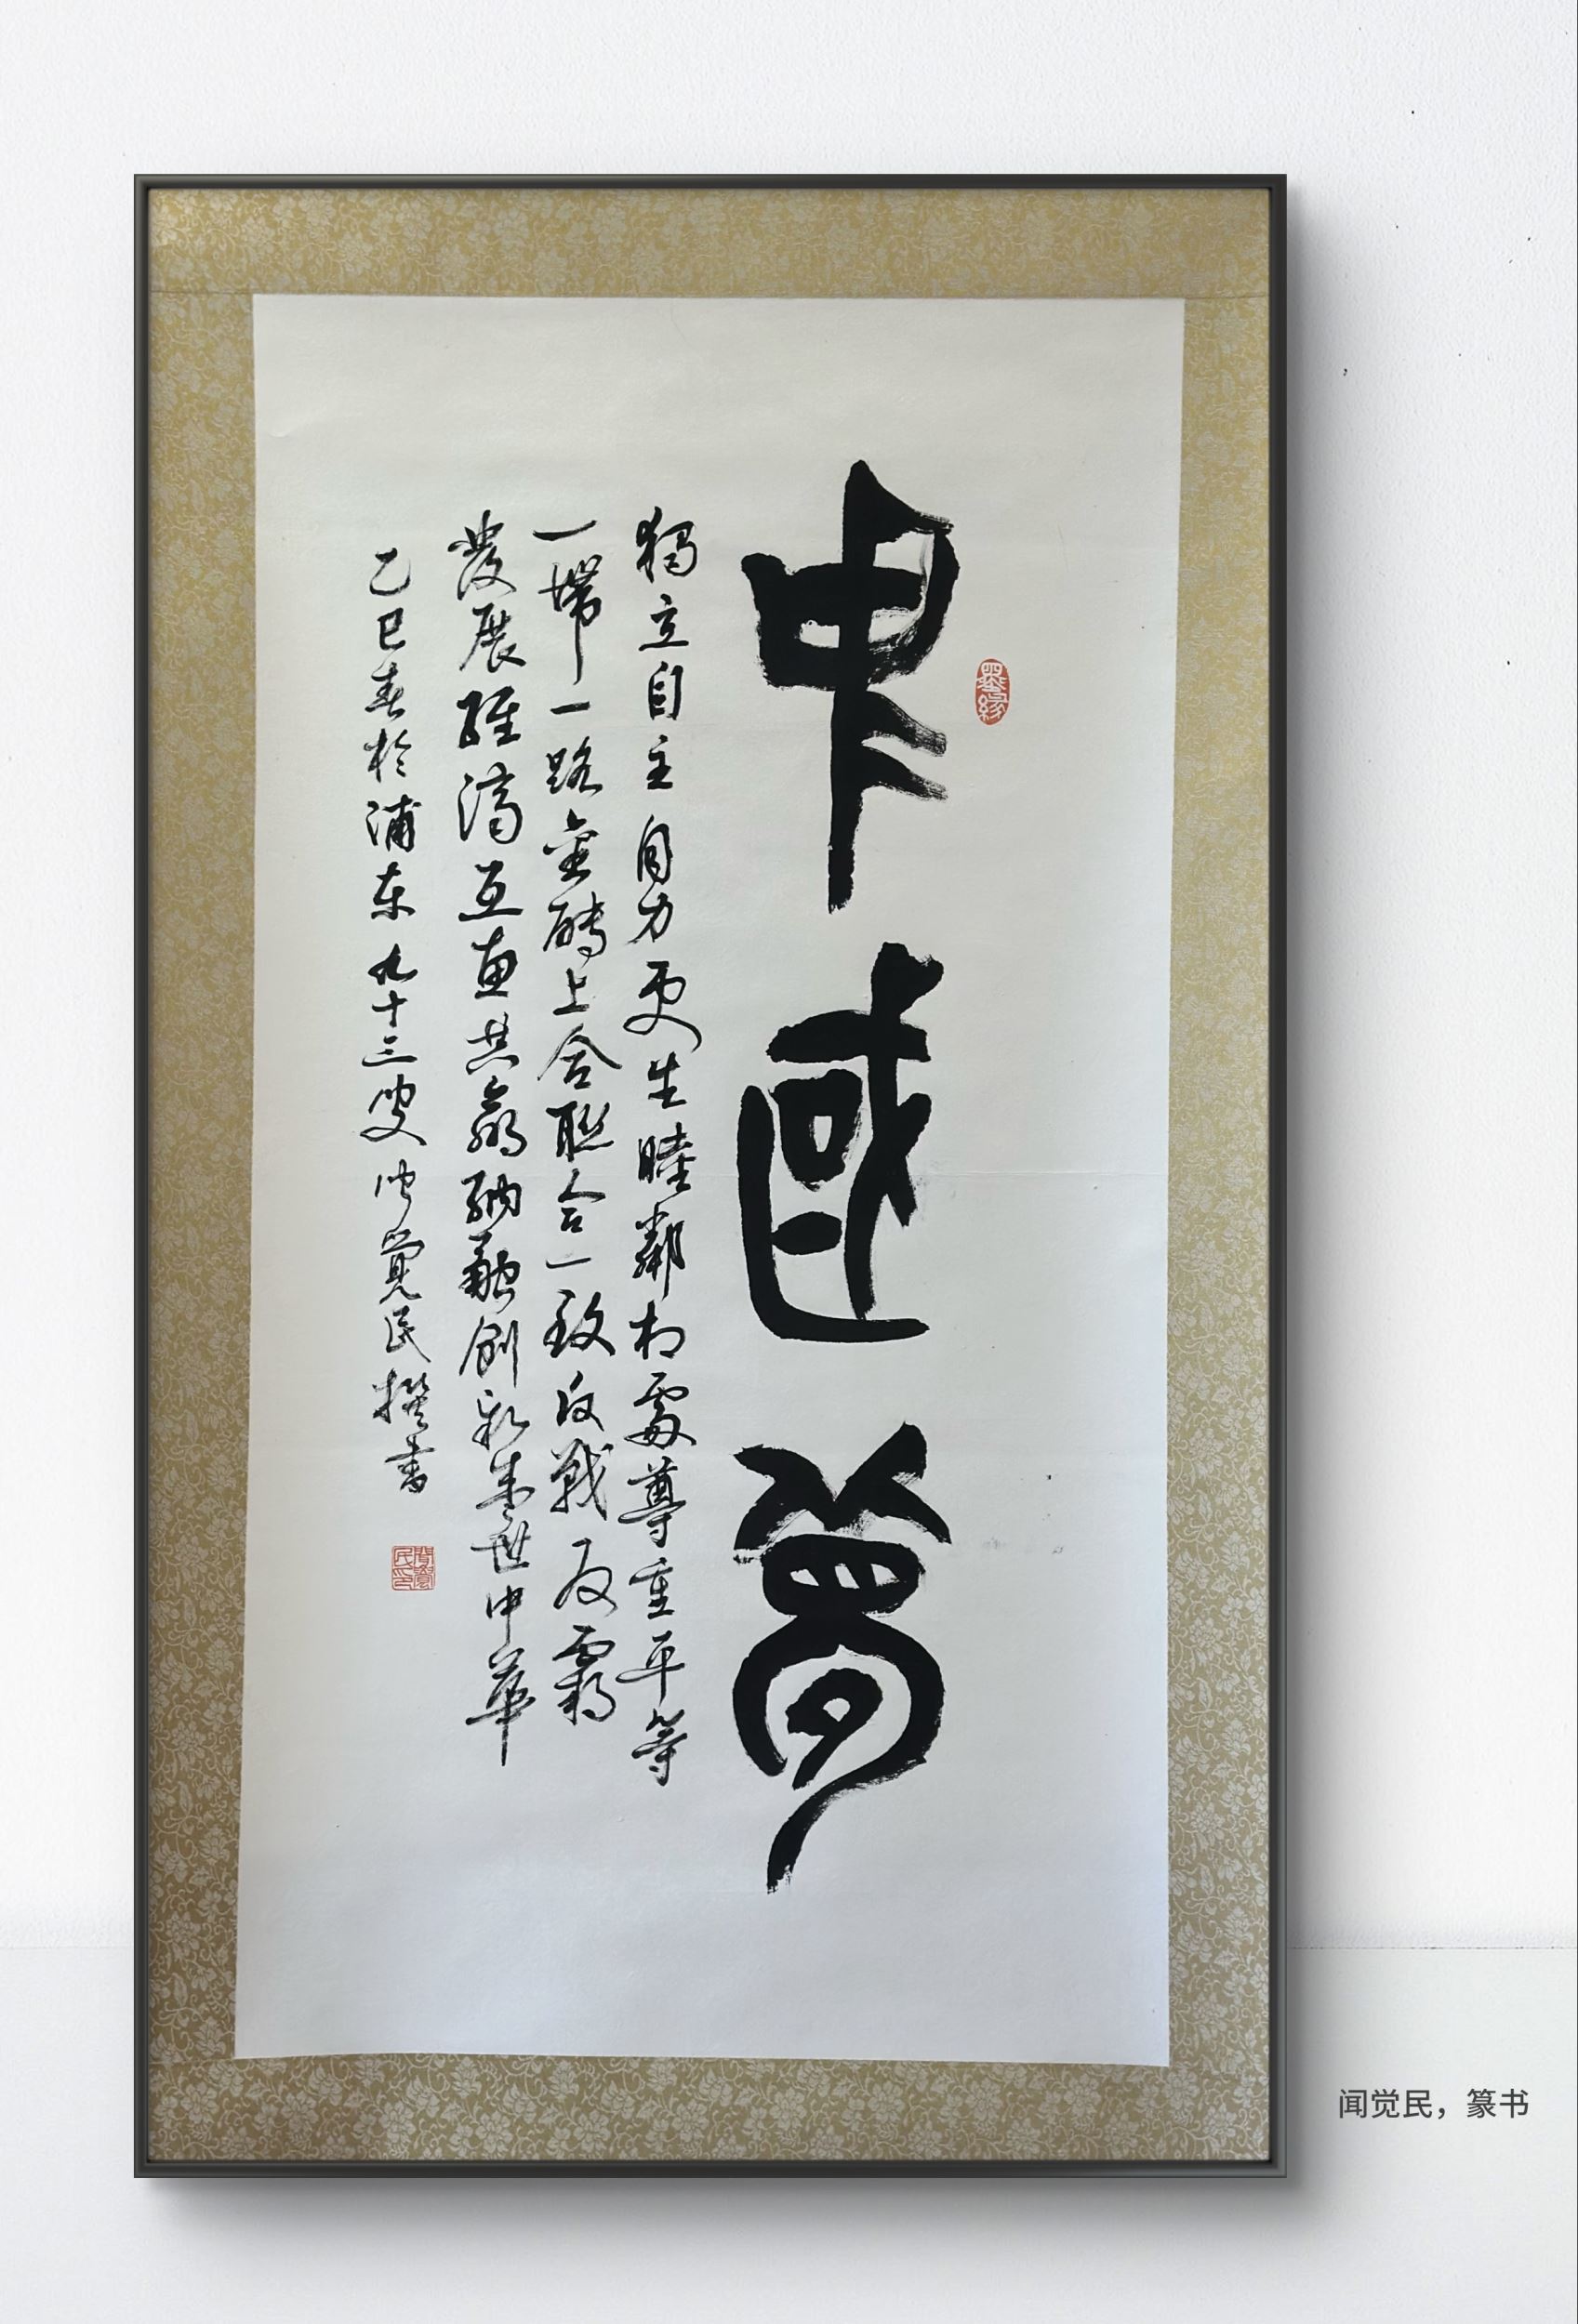 中國夢
獨立自主自力更生睦鄰相處尊重平等
一帶一路金磚上合聯合一致反戰反霸
發展經濟互惠共贏納融創新盛世中華
乙巳春於浦东九十三叟闻觉民撰書
墨缘
聞覺民印
闻觉民，篆书